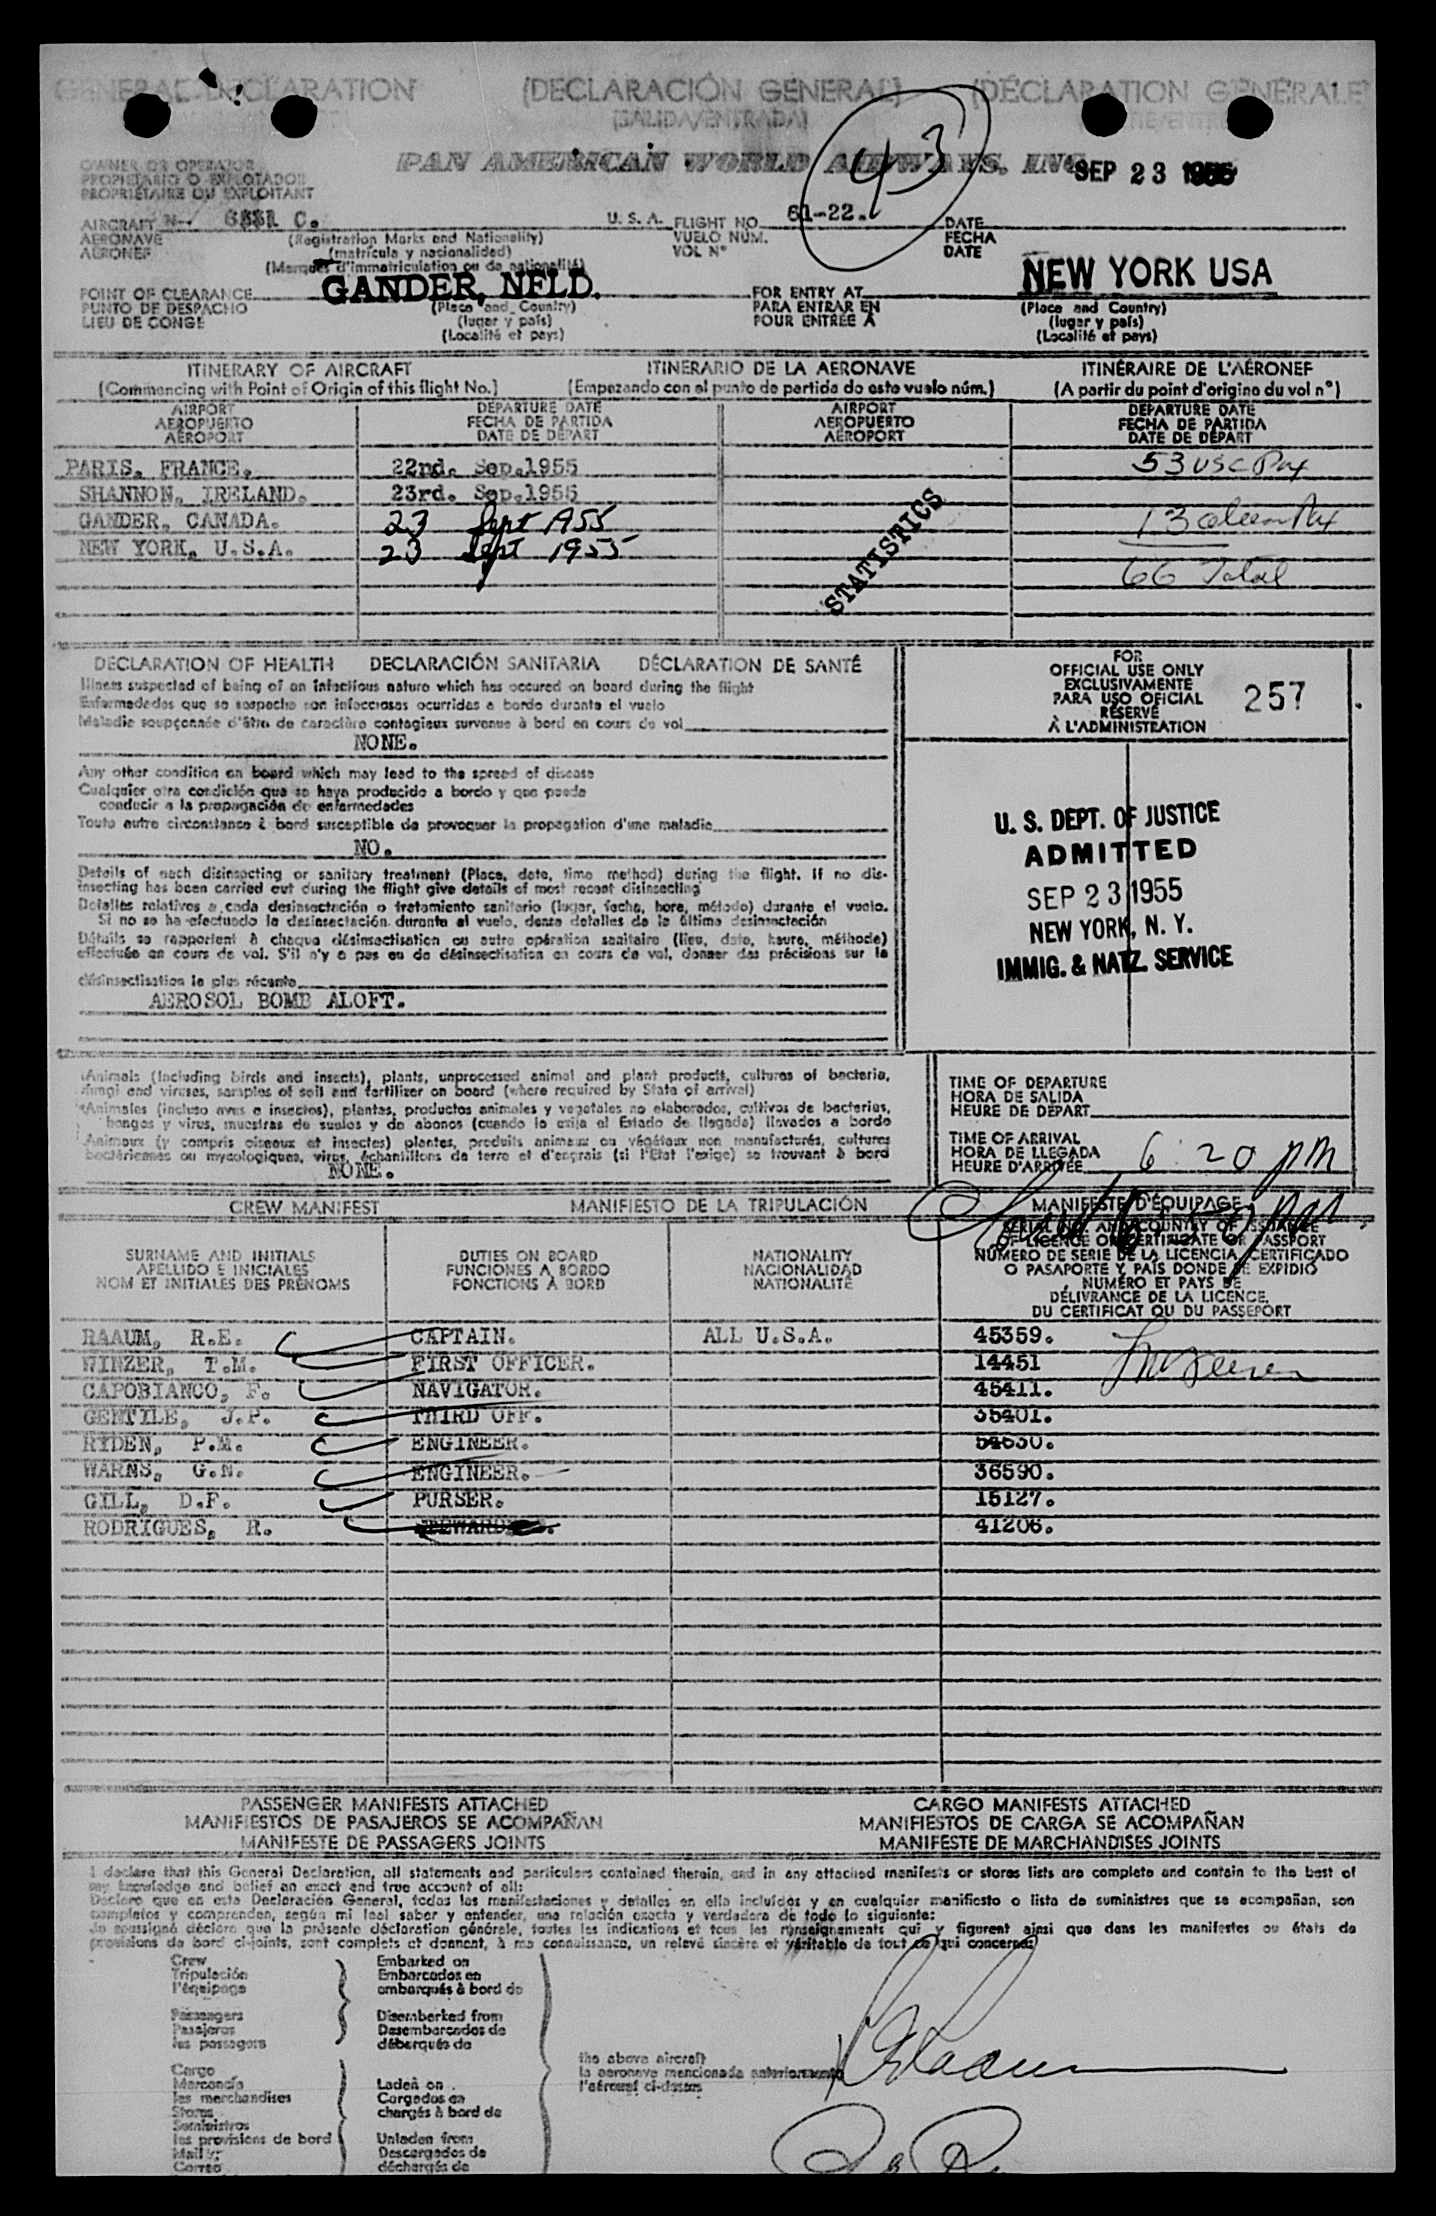 GENERAL DECLARATION (DECLARACIÓN GENERAL) (DÉCLARATION GÉNÉRALE)
(SALIDA/ENTRADA)
43
OWNER OR OPERATOR
PROPIETARIO O EXPLOTADOR
PROPRIÉTAIRE OU EXPLOITANT
PAN AMERICAN WORLD AIRWAYS, INC.
SEP 23 1955
AIRCRAFT N- C. U. S. A. FLIGHT NO. 61-22. DATE
AERONAVE (Registration Marks and Nationality) VUELO NÚM. FECHA
AÉRONEF (matrícula y nacionalidad) VOL Nº DATE
(Marques d'immatriculation ou de nationalité)
POINT OF CLEARANCE GANDER, NFLD. FOR ENTRY AT NEW YORK USA
PUNTO DE DESPACHO (Place and Country) PARA ENTRAR EN (Place and Country)
LIEU DE CONGÉ (lugar y país) POUR ENTRÉE À (lugar y país)
(Localité et pays) (Localité et pays)
ITINERARY OF AIRCRAFT ITINERARIO DE LA AERONAVE ITINÉRAIRE DE L'AÉRONEF
(Commencing with Point of Origin of this flight No.) (Empezando con el punto de partida de este vuelo núm.) (A partir du point d'origine du vol nº)
AIRPORT DEPARTURE DATE AIRPORT DEPARTURE DATE
AEROPUERTO FECHA DE PARTIDA AEROPUERTO FECHA DE PARTIDA
AÉROPORT DATE DE DÉPART AÉROPORT DATE DE DÉPART
PARIS, FRANCE. 22nd. Sep.1955 53 USC Pax
SHANNON, IRELAND. 23rd. Sep.1955
GANDER, CANADA. 23 Sept 1955 13 alien Pax
NEW YORK, U.S.A. 23 Sept 1955
66 Total
STATISTICS
DECLARATION OF HEALTH DECLARACIÓN SANITARIA DÉCLARATION DE SANTÉ
Illness suspected of being of an infectious nature which has occured on board during the flight
Enfermedades que se sospecha son infecciosas ocurridas a bordo durante el vuelo
Maladie soupçonnée d'être de caractère contagieux survenue à bord en cours de vol
NONE.
Any other condition on board which may lead to the spread of disease
Cualquier otra condición que se haya producido a bordo y que pueda
conducir a la propagación de enfermedades
Toute autre circonstance à bord susceptible de provoquer la propagation d'une maladie
NO.
Details of each disinsecting or sanitary treatment (Place, date, time method) during the flight. If no dis-
insecting has been carried out during the flight give details of most recent disinsecting
Detalles relativos a cada desinsectación o tratamiento sanitario (lugar, fecha, hora, método) durante el vuelo.
Si no se ha efectuado la desinsectación durante el vuelo, dense detalles de la última desinsectación
Détails se rapportent à chaque désinsectisation ou autre opération sanitaire (lieu, date, heure, méthode)
effectuée en cours de vol. S'il n'y a pas eu de désinsectisation en cours de vol, donner des précisions sur la
désinsectisation la plus récente
AEROSOL BOMB ALOFT.
FOR
OFFICIAL USE ONLY
EXCLUSIVAMENTE
PARA USO OFICIAL
RÉSERVÉ
À L'ADMINISTRATION
257
U. S. DEPT. OF JUSTICE
ADMITTED
SEP 23 1955
NEW YORK, N. Y.
IMMIG. & NATZ. SERVICE
Animals (Including birds and insects), plants, unprocessed animal and plant products, cultures of bacteria,
fungi and viruses, samples of soil and fertilizer on board (where required by State of arrival)
Animales (incluso aves e insectos), plantas, productos animales y vegetales no elaborados, cultivos de bacterias,
hongos y virus, muestras de suelos y de abonos (cuando lo exija el Estado de llegada) llevados a bordo
Animaux (y compris oiseaux et insectes) plantes, produits animaux ou végétaux non manufacturés, cultures
bactériennes ou mycologiques, virus, échantillons de terre et d'engrais (si l'État l'exige) se trouvant à bord
NONE.
TIME OF DEPARTURE
HORA DE SALIDA
HEURE DE DÉPART
TIME OF ARRIVAL
HORA DE LLEGADA
HEURE D'ARRIVÉE 6:20 pm
CREW MANIFEST MANIFIESTO DE LA TRIPULACIÓN MANIFESTE D'ÉQUIPAGE
SURNAME AND INITIALS DUTIES ON BOARD NATIONALITY
APELLIDO E INICIALES FUNCIONES A BORDO NACIONALIDAD
NOM ET INITIALES DES PRÉNOMS FONCTIONS À BORD NATIONALITÉ
SERIAL NO. AND COUNTRY OF ISSUANCE
OF LICENCE OR CERTIFICATE OR PASSPORT
NÚMERO DE SERIE DE LA LICENCIA, CERTIFICADO
O PASAPORTE Y PAÍS DONDE SE EXPIDIÓ
NUMÉRO ET PAYS DE
DÉLIVRANCE DE LA LICENCE,
DU CERTIFICAT OU DU PASSEPORT
RAAUM, R.E. CAPTAIN. ALL U.S.A. 45359.
WINZER, T.M. FIRST OFFICER. 14451
CAPOBIANCO, F. NAVIGATOR. 45411.
GENTILE, J.P. THIRD OFF. 35401.
RYDEN, P.M. ENGINEER. 54630.
WARNS, G.N. ENGINEER. 36590.
GILL, D.F. PURSER. 15127.
RODRIGUES, R. 41206.
PASSENGER MANIFESTS ATTACHED CARGO MANIFESTS ATTACHED
MANIFIESTOS DE PASAJEROS SE ACOMPAÑAN MANIFIESTOS DE CARGA SE ACOMPAÑAN
MANIFESTE DE PASSAGERS JOINTS MANIFESTE DE MARCHANDISES JOINTS
I declare that this General Declaration, all statements and particulars contained therein, and in any attached manifests or stores lists are complete and contain to the best of
my knowledge and belief an exact and true account of all:
Declaro que en esta Declaración General, todas las manifestaciones y detalles en ella incluídos y en cualquier manifiesto o lista de suministros que se acompañan, son
completos y comprenden, según mi leal saber y entender, una relación exacta y verdadera de todo lo siguiente:
Je soussigné déclare que la présente déclaration générale, toutes les indications et tous les renseignements qui y figurent ainsi que dans les manifestes ou états de
provisions de bord ci-joints, sont complets et donnent, à ma connaissance, un relevé sincère et véritable de tout ce qui concerne:
Crew Embarked on
Tripulación Embarcados en
l'équipage embarqués à bord de
Passengers Disembarked from
Pasajeros Desembarcados de
les passagers débarqués de
the above aircraft
la aeronave mencionada anteriormente
l'aéronef ci-dessus
Cargo
Mercancía Laden on
les marchandises Cargados en
Stores chargés à bord de
Suministros
les provisions de bord Unladen from
Mail Descargados de
Correo déchargés de